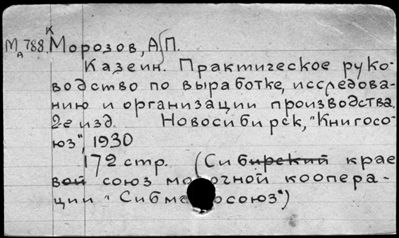 К
М 788 Морозов, А.П.
а
Казеин. Практическое руко-
водство по выработке, исследова-
нию и организации производства.
2е изд. Новосибирск, "Книгосо-
юз", 1930
172 стр. (Сибирский крае
вой союз мо очной коопера-
ции "Сибм осоюз")